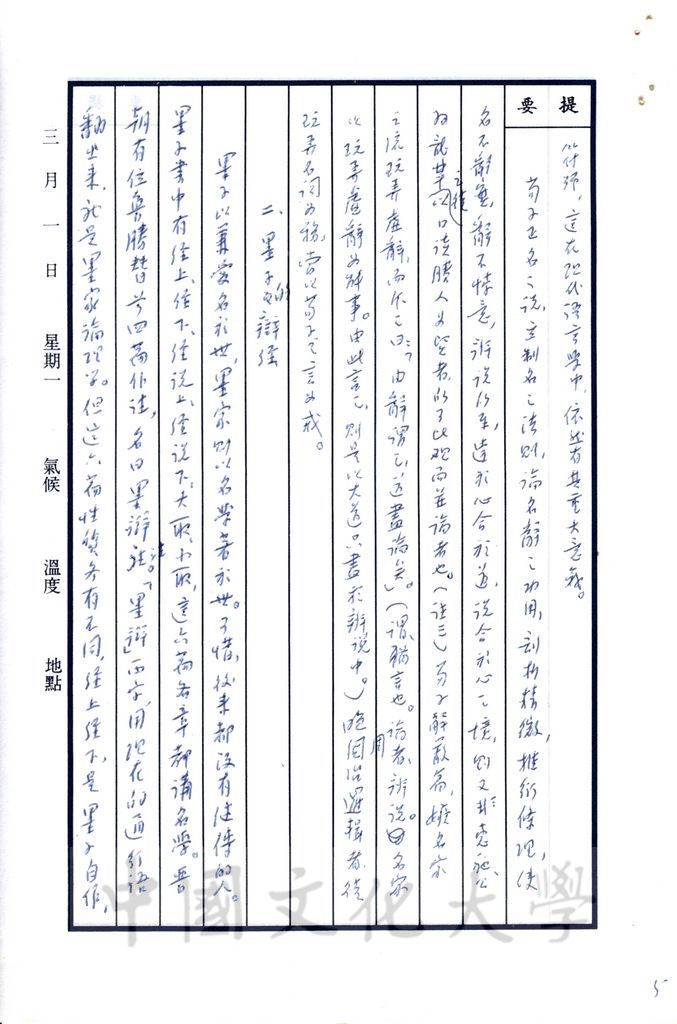 提要
符號，這在現代語言學中，依然有其重大意義。
荀子正名之說，立制名之法則，論名辭之功用，剖析精微，推衍條理，使
名不離實，辭不悖意，辨說所至，達於心合於道，說合於心之境，則又非惠施公
孫龍之徒以口談勝人為賢者，所可比觀而並論者也。（註三）荀子解蔽篇，嫉名家
之流玩弄虛辭，而斥之曰：「由辭謂之，道盡論矣。」（謂，猶言也。論者，辨說。因名家
以玩弄虛辭為能事。由此言之，則是以大道只盡於辨說中。）晚個治邏輯者，徒用
玩弄名詞為務，當以荀子之言為戒。
二、墨子的辯經
墨子以兼愛名於世，墨家則以名學著於世。可惜，後來都沒有繼傳的人。
墨子書中有經上、經下、經說上、經說下、大取、小取，這六篇各章都講名學。晉
朝有位魯勝替前四篇作註，名曰墨辯註。「墨辯」兩字，用現在的通行語
翻出來，就是墨家論理學。但這六篇性質各有不同，經上經下，是墨子自作，
三月一日 星期一 氣候 溫度 地點
中國文化大學
5